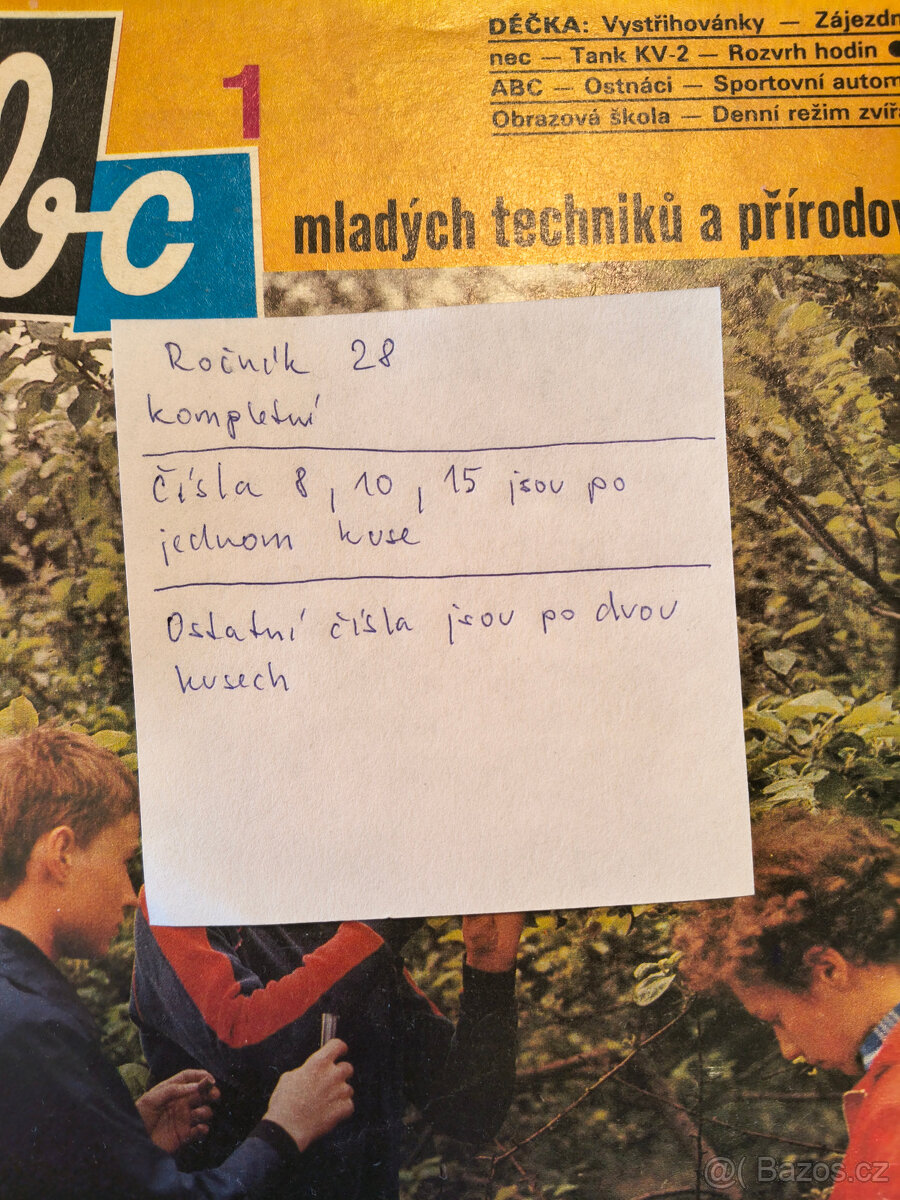 DÉČKA: Vystřihovánky — Zájezdn
nec — Tank KV-2 — Rozvrh hodin ●
ABC — Ostnáci — Sportovní autom
Obrazová škola — Denní režim zvířa
1
bc
mladých techniků a přírodov
Ročník 28
kompletní
čísla 8, 10, 15 jsou po
jednom kuse
Ostatní čísla jsou po dvou
kusech
@( Bazos.cz